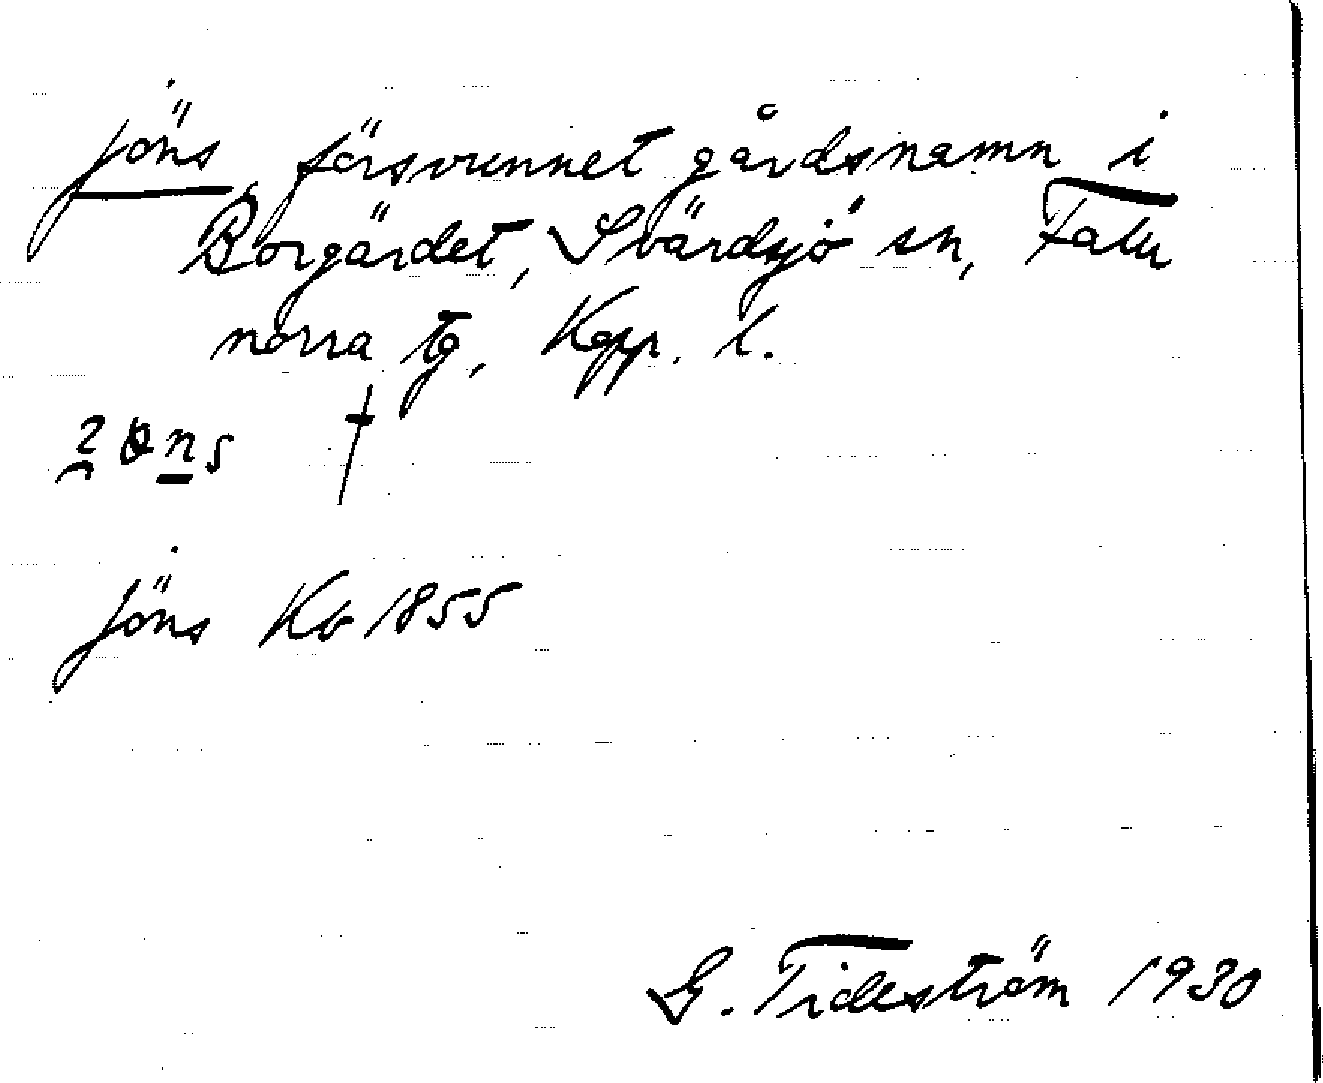 Jöns försvunnet gårdsnamn i
Borgärdet, Svärdsjö sn, Falu
norra tg, Kopp. l.
Jöns Kb 1855
G. Tideström 1930